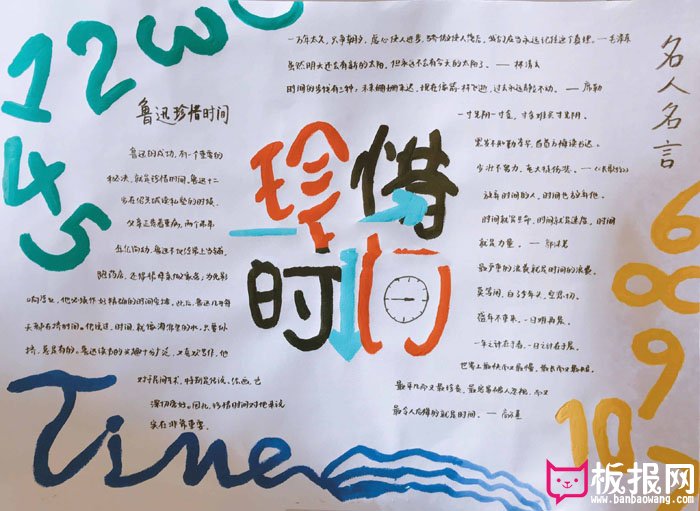 1 2 3
4 5
珍惜时间
鲁迅珍惜时间
鲁迅的成功，有一个重要的
秘决，就是珍惜时间。鲁迅十二
岁在绍兴城读私塾的时候，
父亲正患着重病，两个弟弟
年纪尚幼，鲁迅不仅经常上当铺，
跑药店，还得帮母亲做家务，为免影
响学业，他必须作好精确的时间安排。此后，鲁迅几乎每
天都在挤时间。他说过，时间，就像海绵里的水，只要你
挤，总是有的。鲁迅读书的兴趣十分广泛，又喜欢写作，他
对于民间艺术，特别是传说、绘画，也
深切爱好。因此，珍惜时间对他来说
实在非常重要。
Time
名人名言
一万年太久，只争朝夕。虚心使人进步，骄傲使人落后，我们应当永远记住这个真理。——毛泽东
虽然明天还会有新的太阳，但永远不会有今天的太阳了。——林清玄
时间的步伐有三种，未来姗姗来迟，现在像箭一样飞逝，过去永远静立不动。——席勒
一寸光阴一寸金，寸金难买寸光阴。
黑发不知勤学早，白首方悔读书迟。
少壮不努力，老大徒伤悲。——《长歌行》
放弃时间的人，时间也放弃他。
时间就是生命，时间就是速度，时间
就是力量。——郭沫若
最严重的浪费就是时间的浪费。
莫等闲，白了少年头，空悲切。
盛年不重来，一日难再晨。
一年之计在于春，一日之计在于晨。
世界上最快而又最慢，最长而又最短，
最平凡而又最珍贵，最易忽视人忽视，而又
最令人后悔的就是时间。——高尔基
6
8
9
10
板报网
www.banbaowang.com